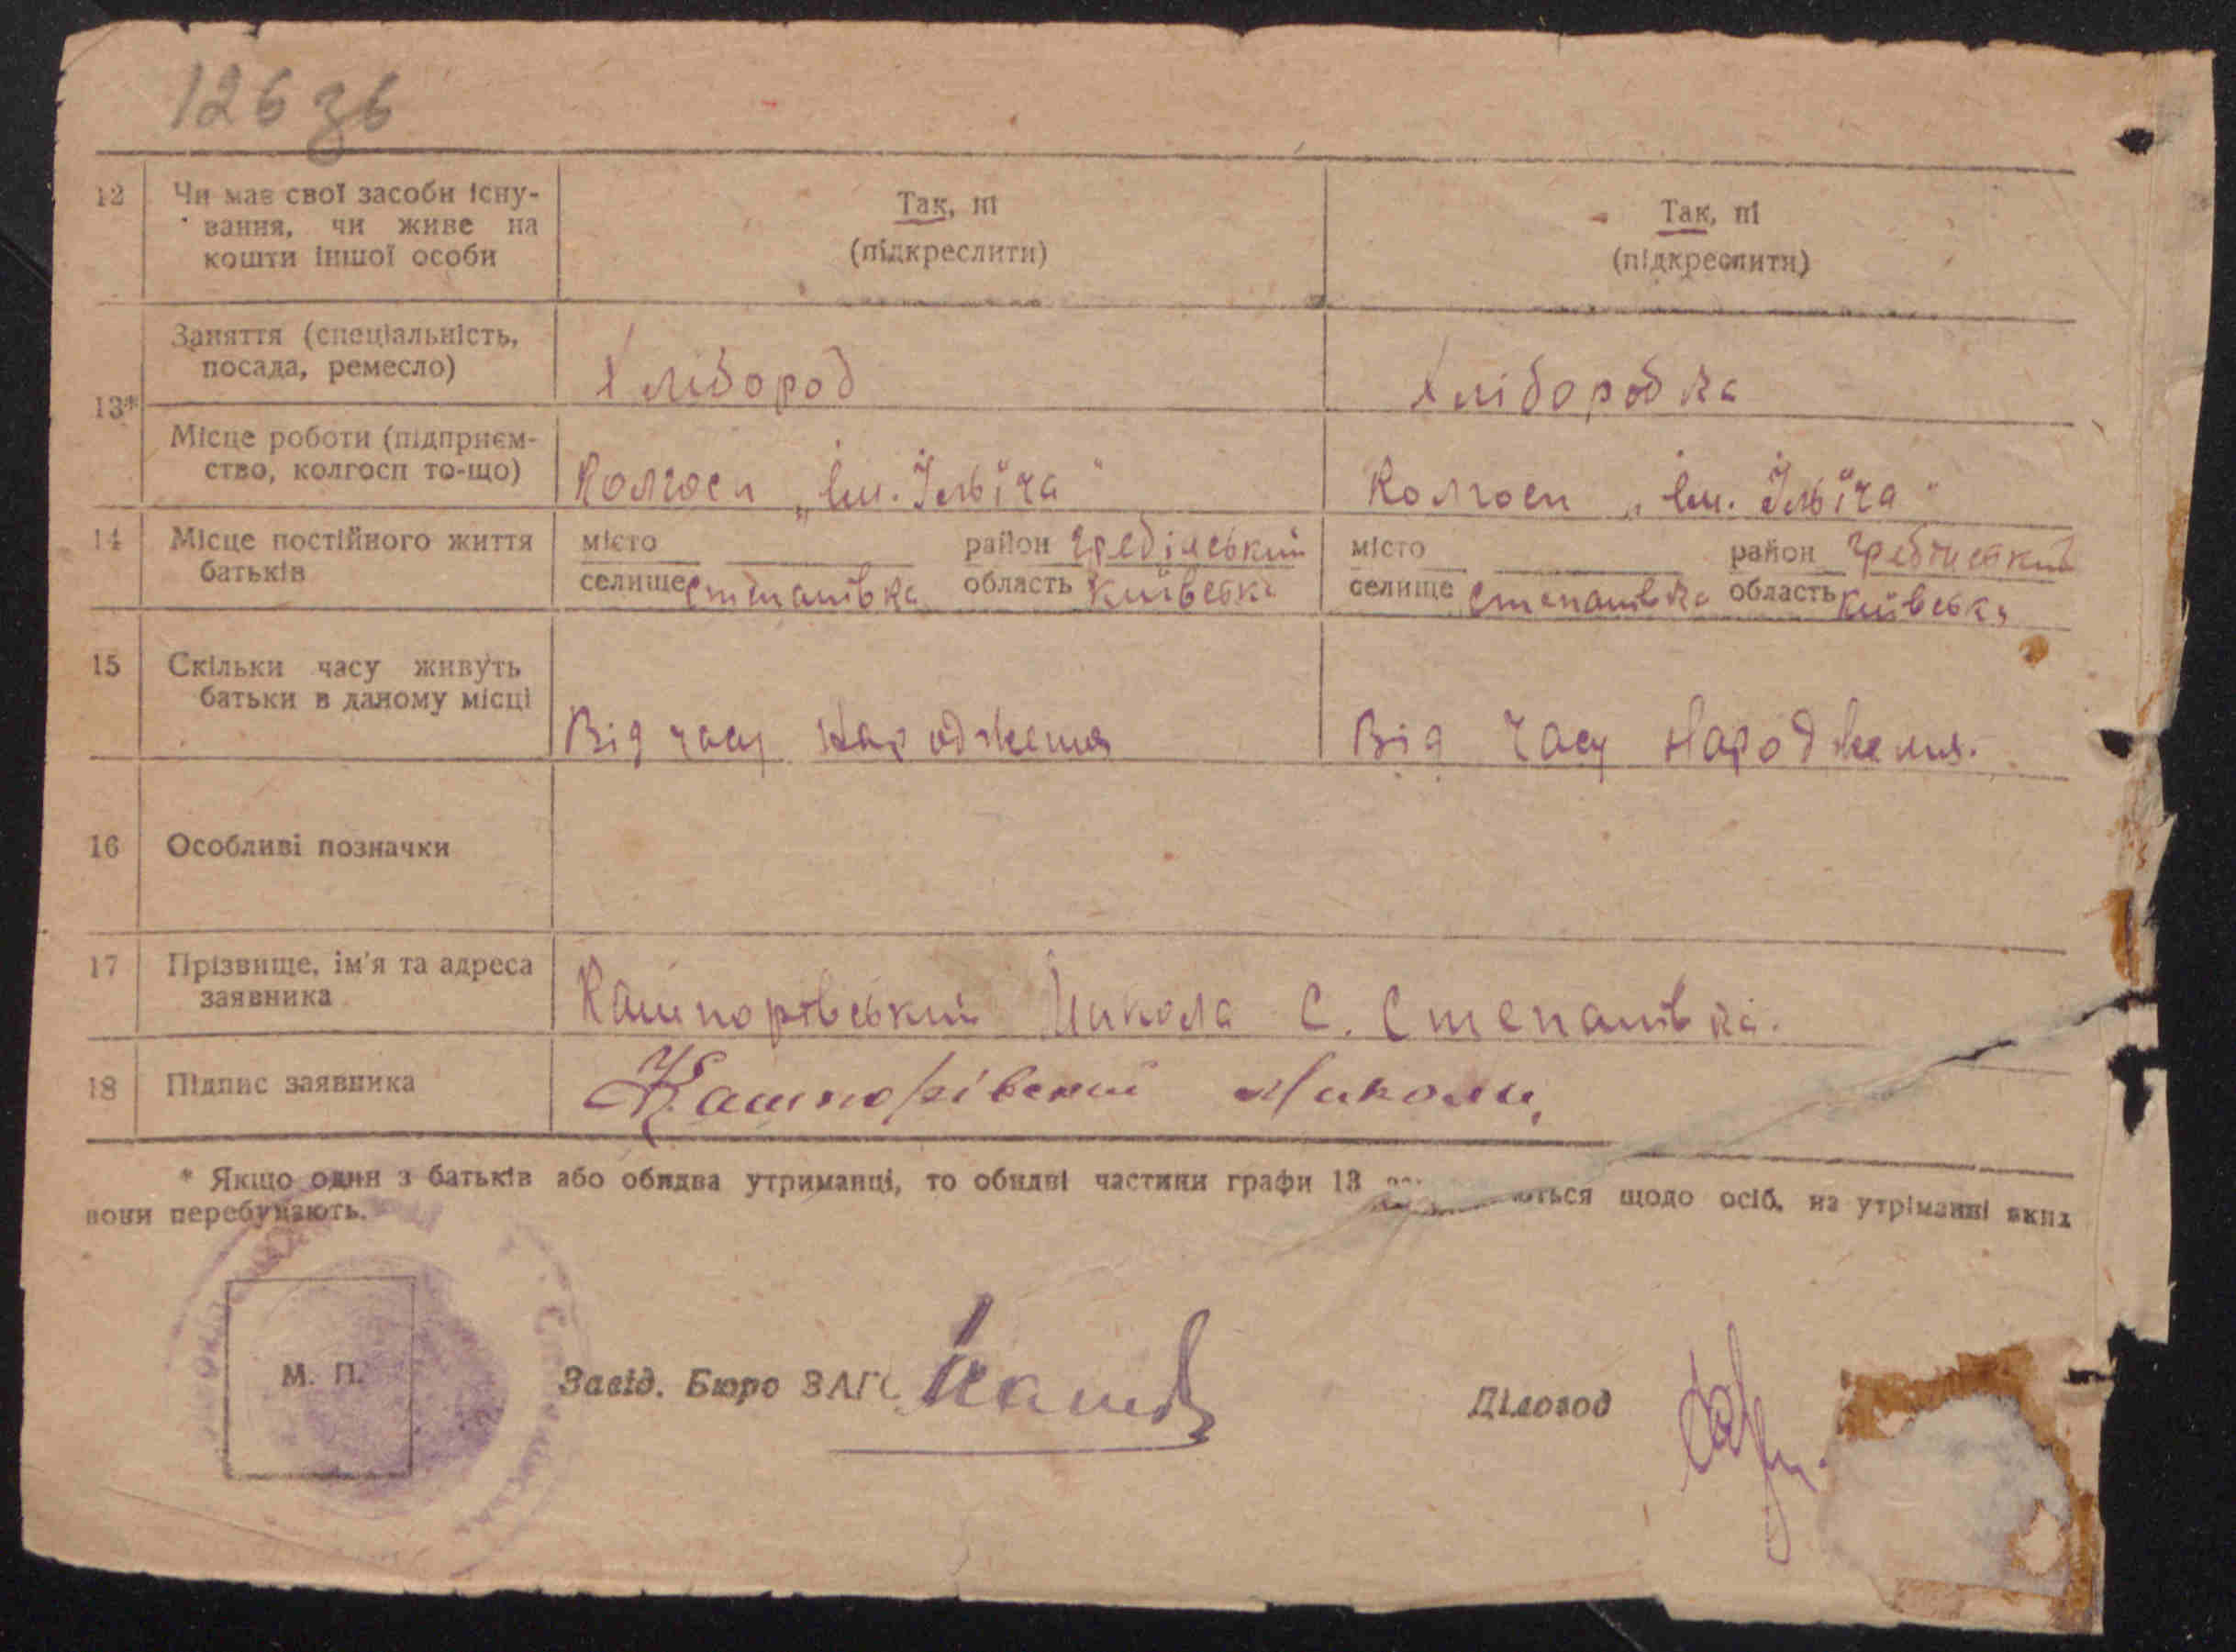 126 зв
12 Чи має свої засоби існу-
вання, чи живе на
кошти іншої особи
Так, ні
(підкреслити)
Так, ні
(підкреслити)
13*
Заняття (спеціальність,
посада, ремесло)
Хлібороб
Хліборобка
Місце роботи (підприєм-
ство, колгосп то-що)
Колгосп „Ім. Ільїча"
Колгосп „Ім. Ільїча"
14 Місце постійного життя
батьків
місто район Гребінський
селище Степанівка область Київська
місто район Гребінський
селище Степанівка область Київська
15 Скільки часу живуть
батьки в даному місці
Від часу народження
Від часу народження.
16 Особливі позначки
17 Прізвище, ім'я та адреса
заявника
Кашпорівський Микола С. Степанівка.
18 Підпис заявника
Кашпорівский Микола
* Якщо один з батьків або обидва утриманці, то обидві частини графи 13 ються щодо осіб, на утріманні яких
вони перебувають.
М. П.
Завід. Бюро ЗАГС
Діловод